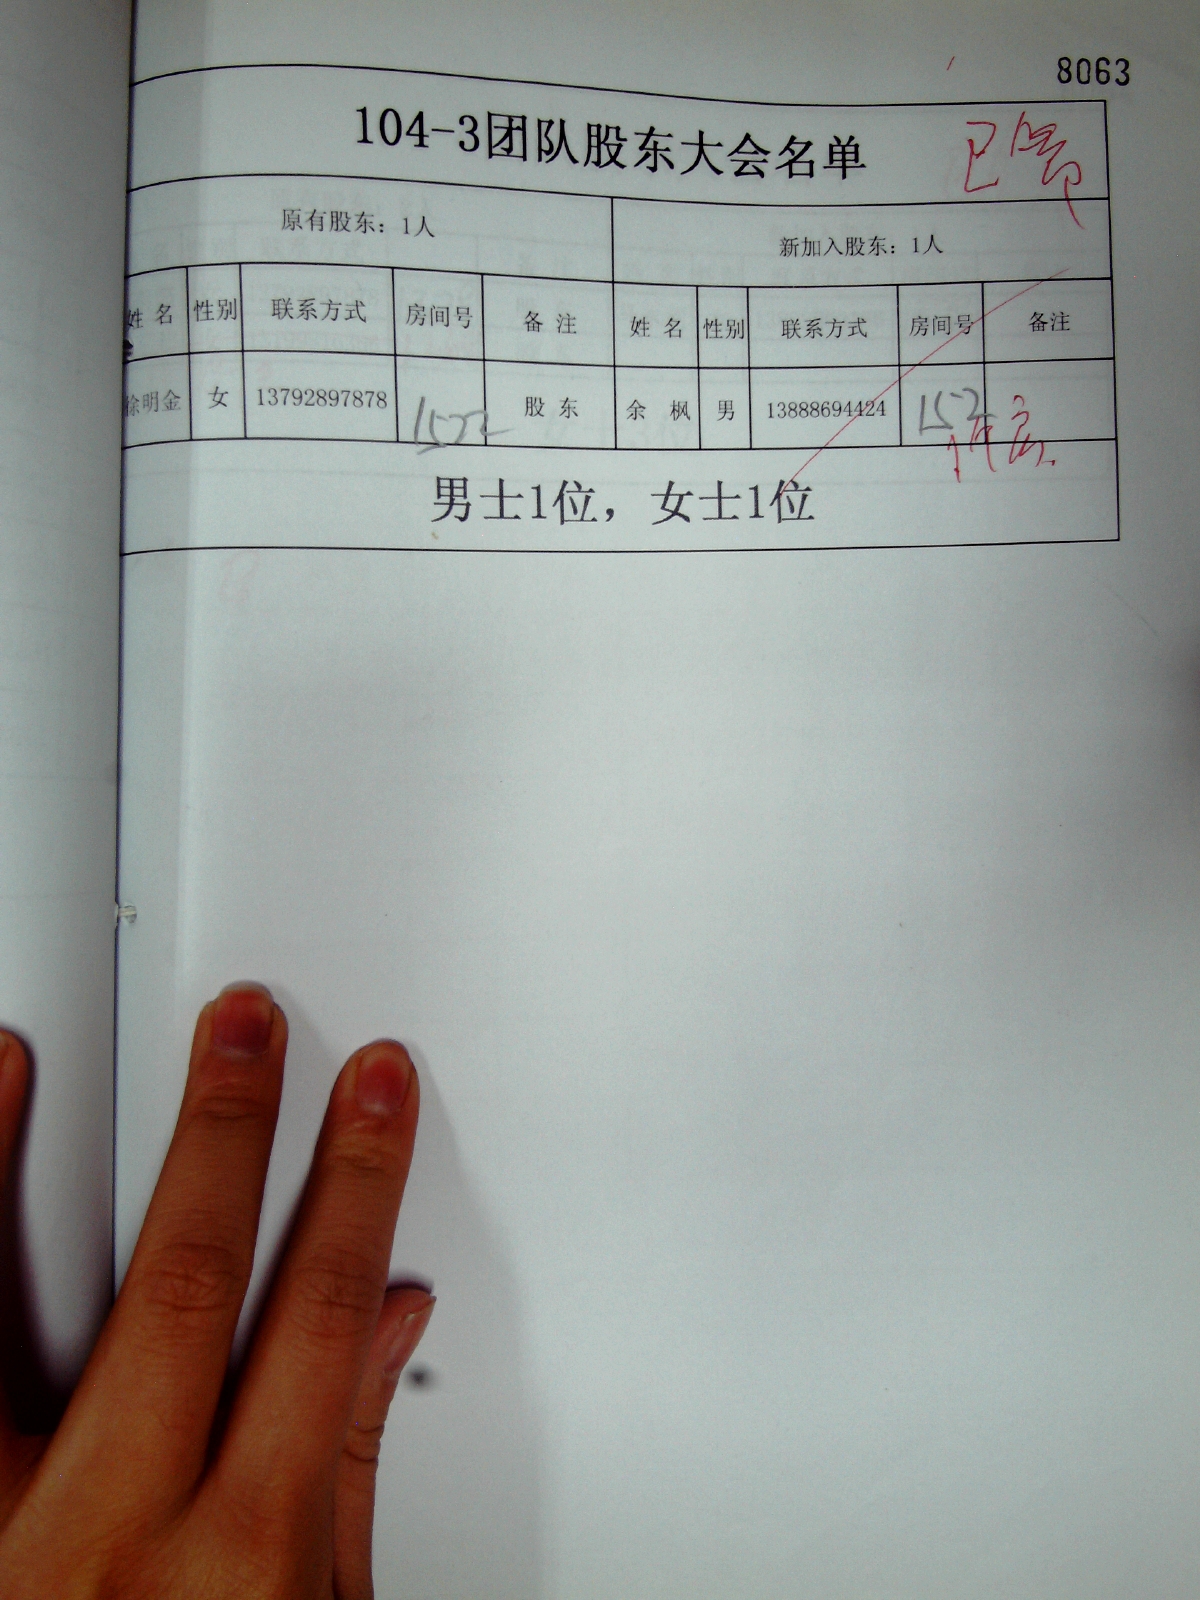 8063
104-3团队股东大会名单
原有股东：1人 新加入股东：1人
姓 名 性别 联系方式 房间号 备 注 姓 名 性别 联系方式 房间号 备注
徐明金 女 13792897878 1522 股 东 余 枫 男 13888694424 152
男士1位，女士1位